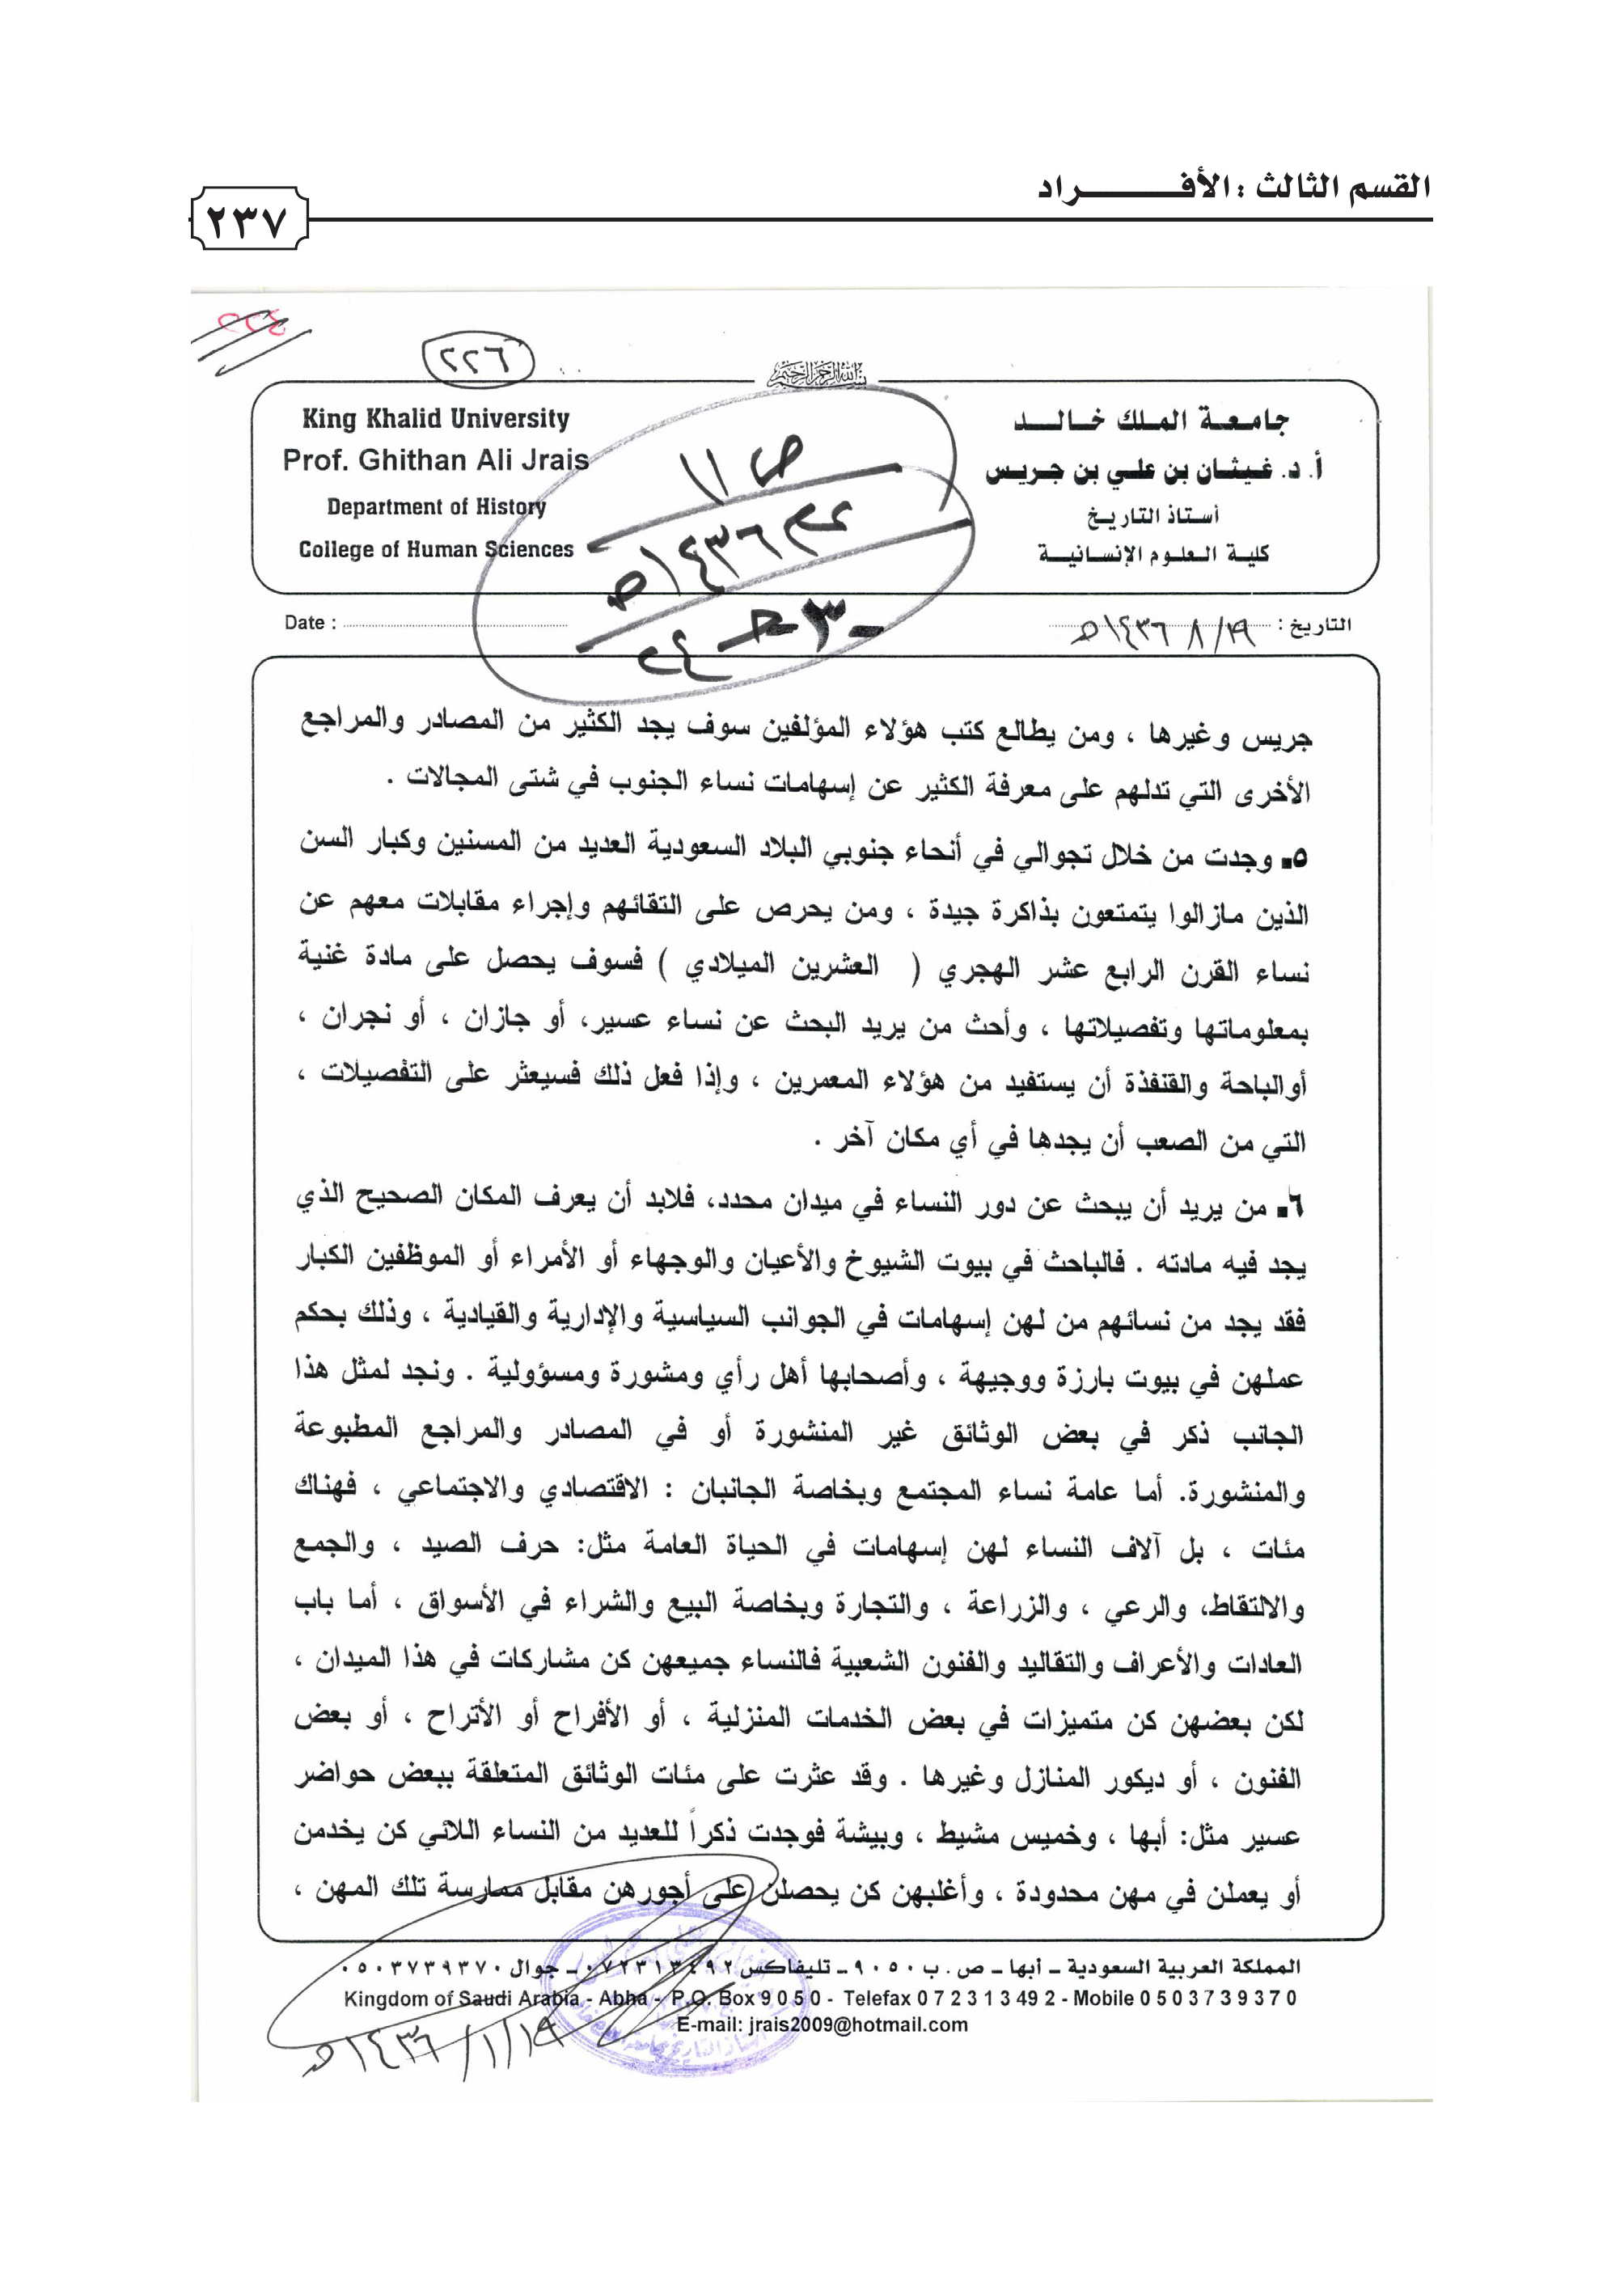 القسم الثالث : الأفـــــــــراد
٢٣٧
٢٢٦
بسم الله الرحمن الرحيم
King Khalid University
Prof. Ghithan Ali Jrais
Department of History
College of Human Sciences
جامعة الملك خالد
أ. د. غيثان بن علي بن جريس
أستاذ التاريخ
كلية العلوم الإنسانية
ص ١١
١٤٣٦هـ
Date :
التاريخ : ١٩/ ٨ /١٤٣٦هـ
جريس وغيرها ، ومن يطالع كتب هؤلاء المؤلفين سوف يجد الكثير من المصادر والمراجع
الأخرى التي تدلهم على معرفة الكثير عن إسهامات نساء الجنوب في شتى المجالات .
٥. وجدت من خلال تجوالي في أنحاء جنوبي البلاد السعودية العديد من المسنين وكبار السن
الذين مازالوا يتمتعون بذاكرة جيدة ، ومن يحرص على التقائهم وإجراء مقابلات معهم عن
نساء القرن الرابع عشر الهجري ( العشرين الميلادي ) فسوف يحصل على مادة غنية
بمعلوماتها وتفصيلاتها ، وأحث من يريد البحث عن نساء عسير، أو جازان ، أو نجران ،
أوالباحة والقنفذة أن يستفيد من هؤلاء المعمرين ، وإذا فعل ذلك فسيعثر على التفصيلات ،
التي من الصعب أن يجدها في أي مكان آخر .
٦. من يريد أن يبحث عن دور النساء في ميدان محدد، فلابد أن يعرف المكان الصحيح الذي
يجد فيه مادته . فالباحث في بيوت الشيوخ والأعيان والوجهاء أو الأمراء أو الموظفين الكبار
فقد يجد من نسائهم من لهن إسهامات في الجوانب السياسية والإدارية والقيادية ، وذلك بحكم
عملهن في بيوت بارزة ووجيهة ، وأصحابها أهل رأي ومشورة ومسؤولية . ونجد لمثل هذا
الجانب ذكر في بعض الوثائق غير المنشورة أو في المصادر والمراجع المطبوعة
والمنشورة. أما عامة نساء المجتمع وبخاصة الجانبان : الاقتصادي والاجتماعي ، فهناك
مئات ، بل آلاف النساء لهن إسهامات في الحياة العامة مثل: حرف الصيد ، والجمع
والالتقاط، والرعي ، والزراعة ، والتجارة وبخاصة البيع والشراء في الأسواق ، أما باب
العادات والأعراف والتقاليد والفنون الشعبية فالنساء جميعهن كن مشاركات في هذا الميدان ،
لكن بعضهن كن متميزات في بعض الخدمات المنزلية ، أو الأفراح أو الأتراح ، أو بعض
الفنون ، أو ديكور المنازل وغيرها . وقد عثرت على مئات الوثائق المتعلقة ببعض حواضر
عسير مثل: أبها ، وخميس مشيط ، وبيشة فوجدت ذكراً للعديد من النساء اللائي كن يخدمن
أو يعملن في مهن محدودة ، وأغلبهن كن يحصلن على أجورهن مقابل ممارسة تلك المهن ،
المملكة العربية السعودية – أبها – ص. ب ٩٠٥٠ – تليفاكس ٠٧٢٣١٣٤٩٢ – جوال ٠٥٠٣٧٣٩٣٧٠
Kingdom of Saudi Arabia - Abha - P.O. Box 9050 - Telefax 072313492 - Mobile 0503739370
E-mail: jrais2009@hotmail.com
١٤٣٦/١/١٩هـ